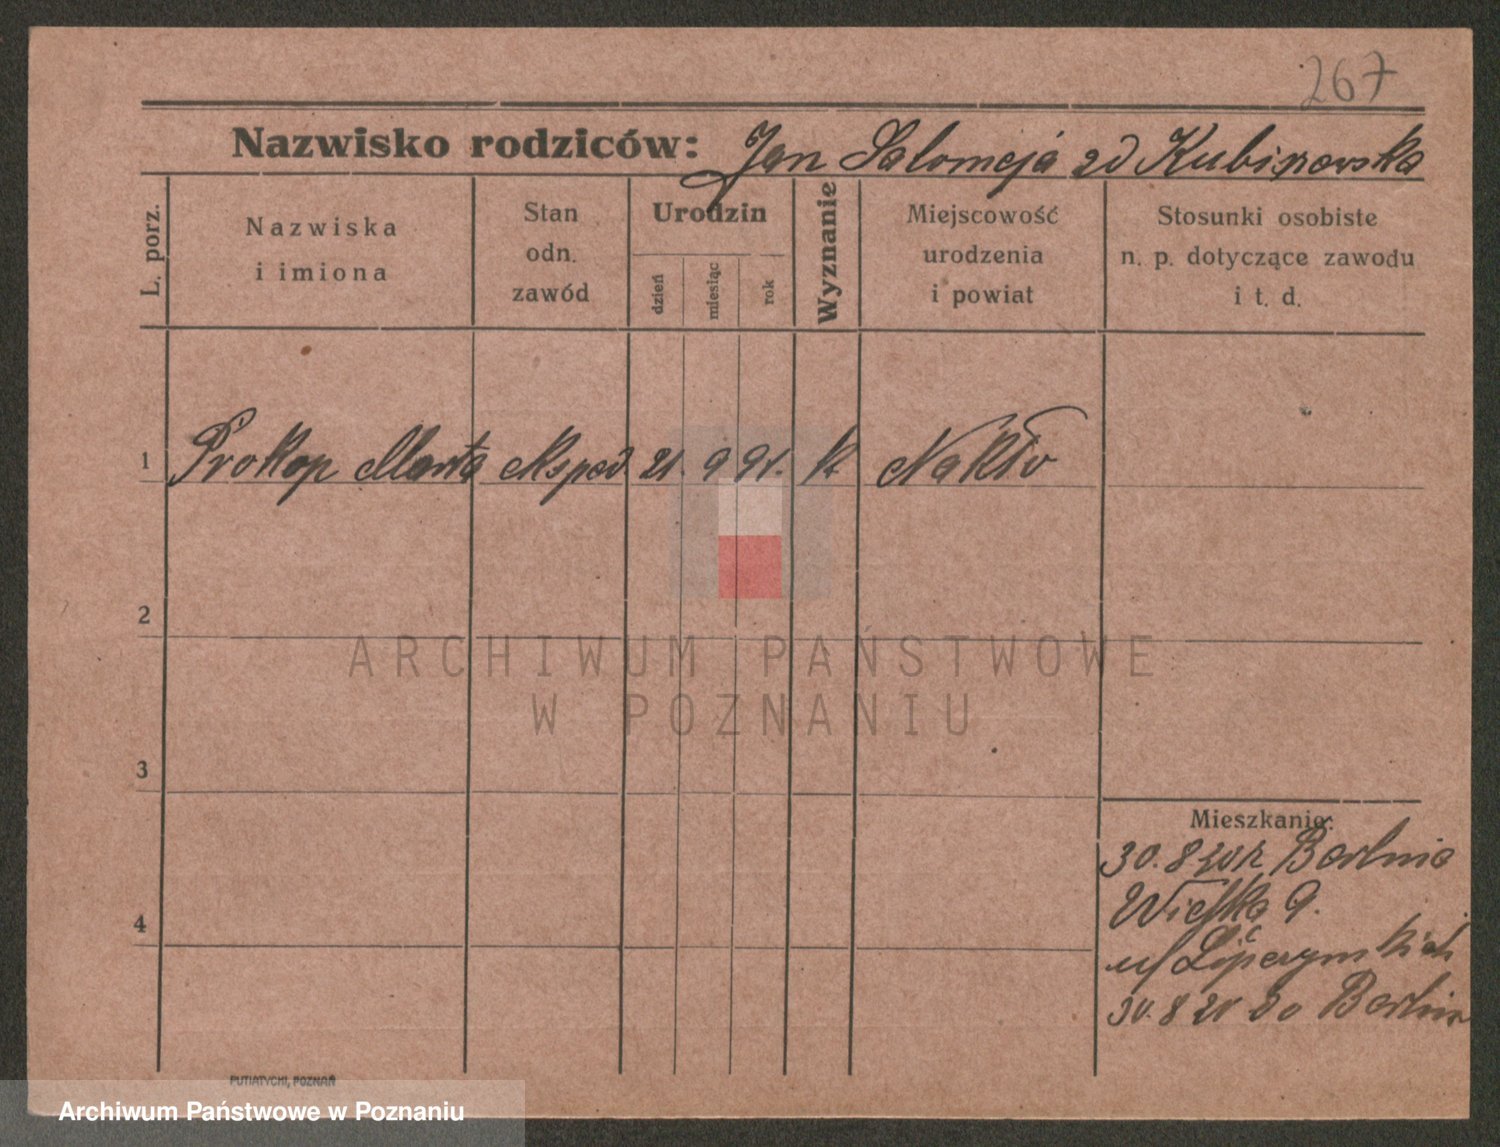 267
Nazwisko rodziców: Jan Salomeja zd
L. porz.
Nazwiska
i imiona
Stan
odn.
zawód
Urodzin
dzień
miesiąc
rok
Wyznanie
Miejscowość
urodzenia
i powiat
Stosunki osobiste
n. p. dotyczące zawodu
i t. d.
1 Prokop Marta eksped 21. 9 91. k Nakło
2
3
4
Mieszkanie:
30. 8 20 z Berlina
Wielka 9.
u/
30. 8 20 do Berlina
PUTIATYCKI, POZNAŃ
ARCHIWUM PAŃSTWOWE
W POZNANIU
Archiwum Państwowe w Poznaniu